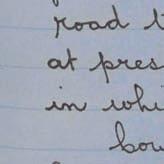 road t
at pres
in whi
bow